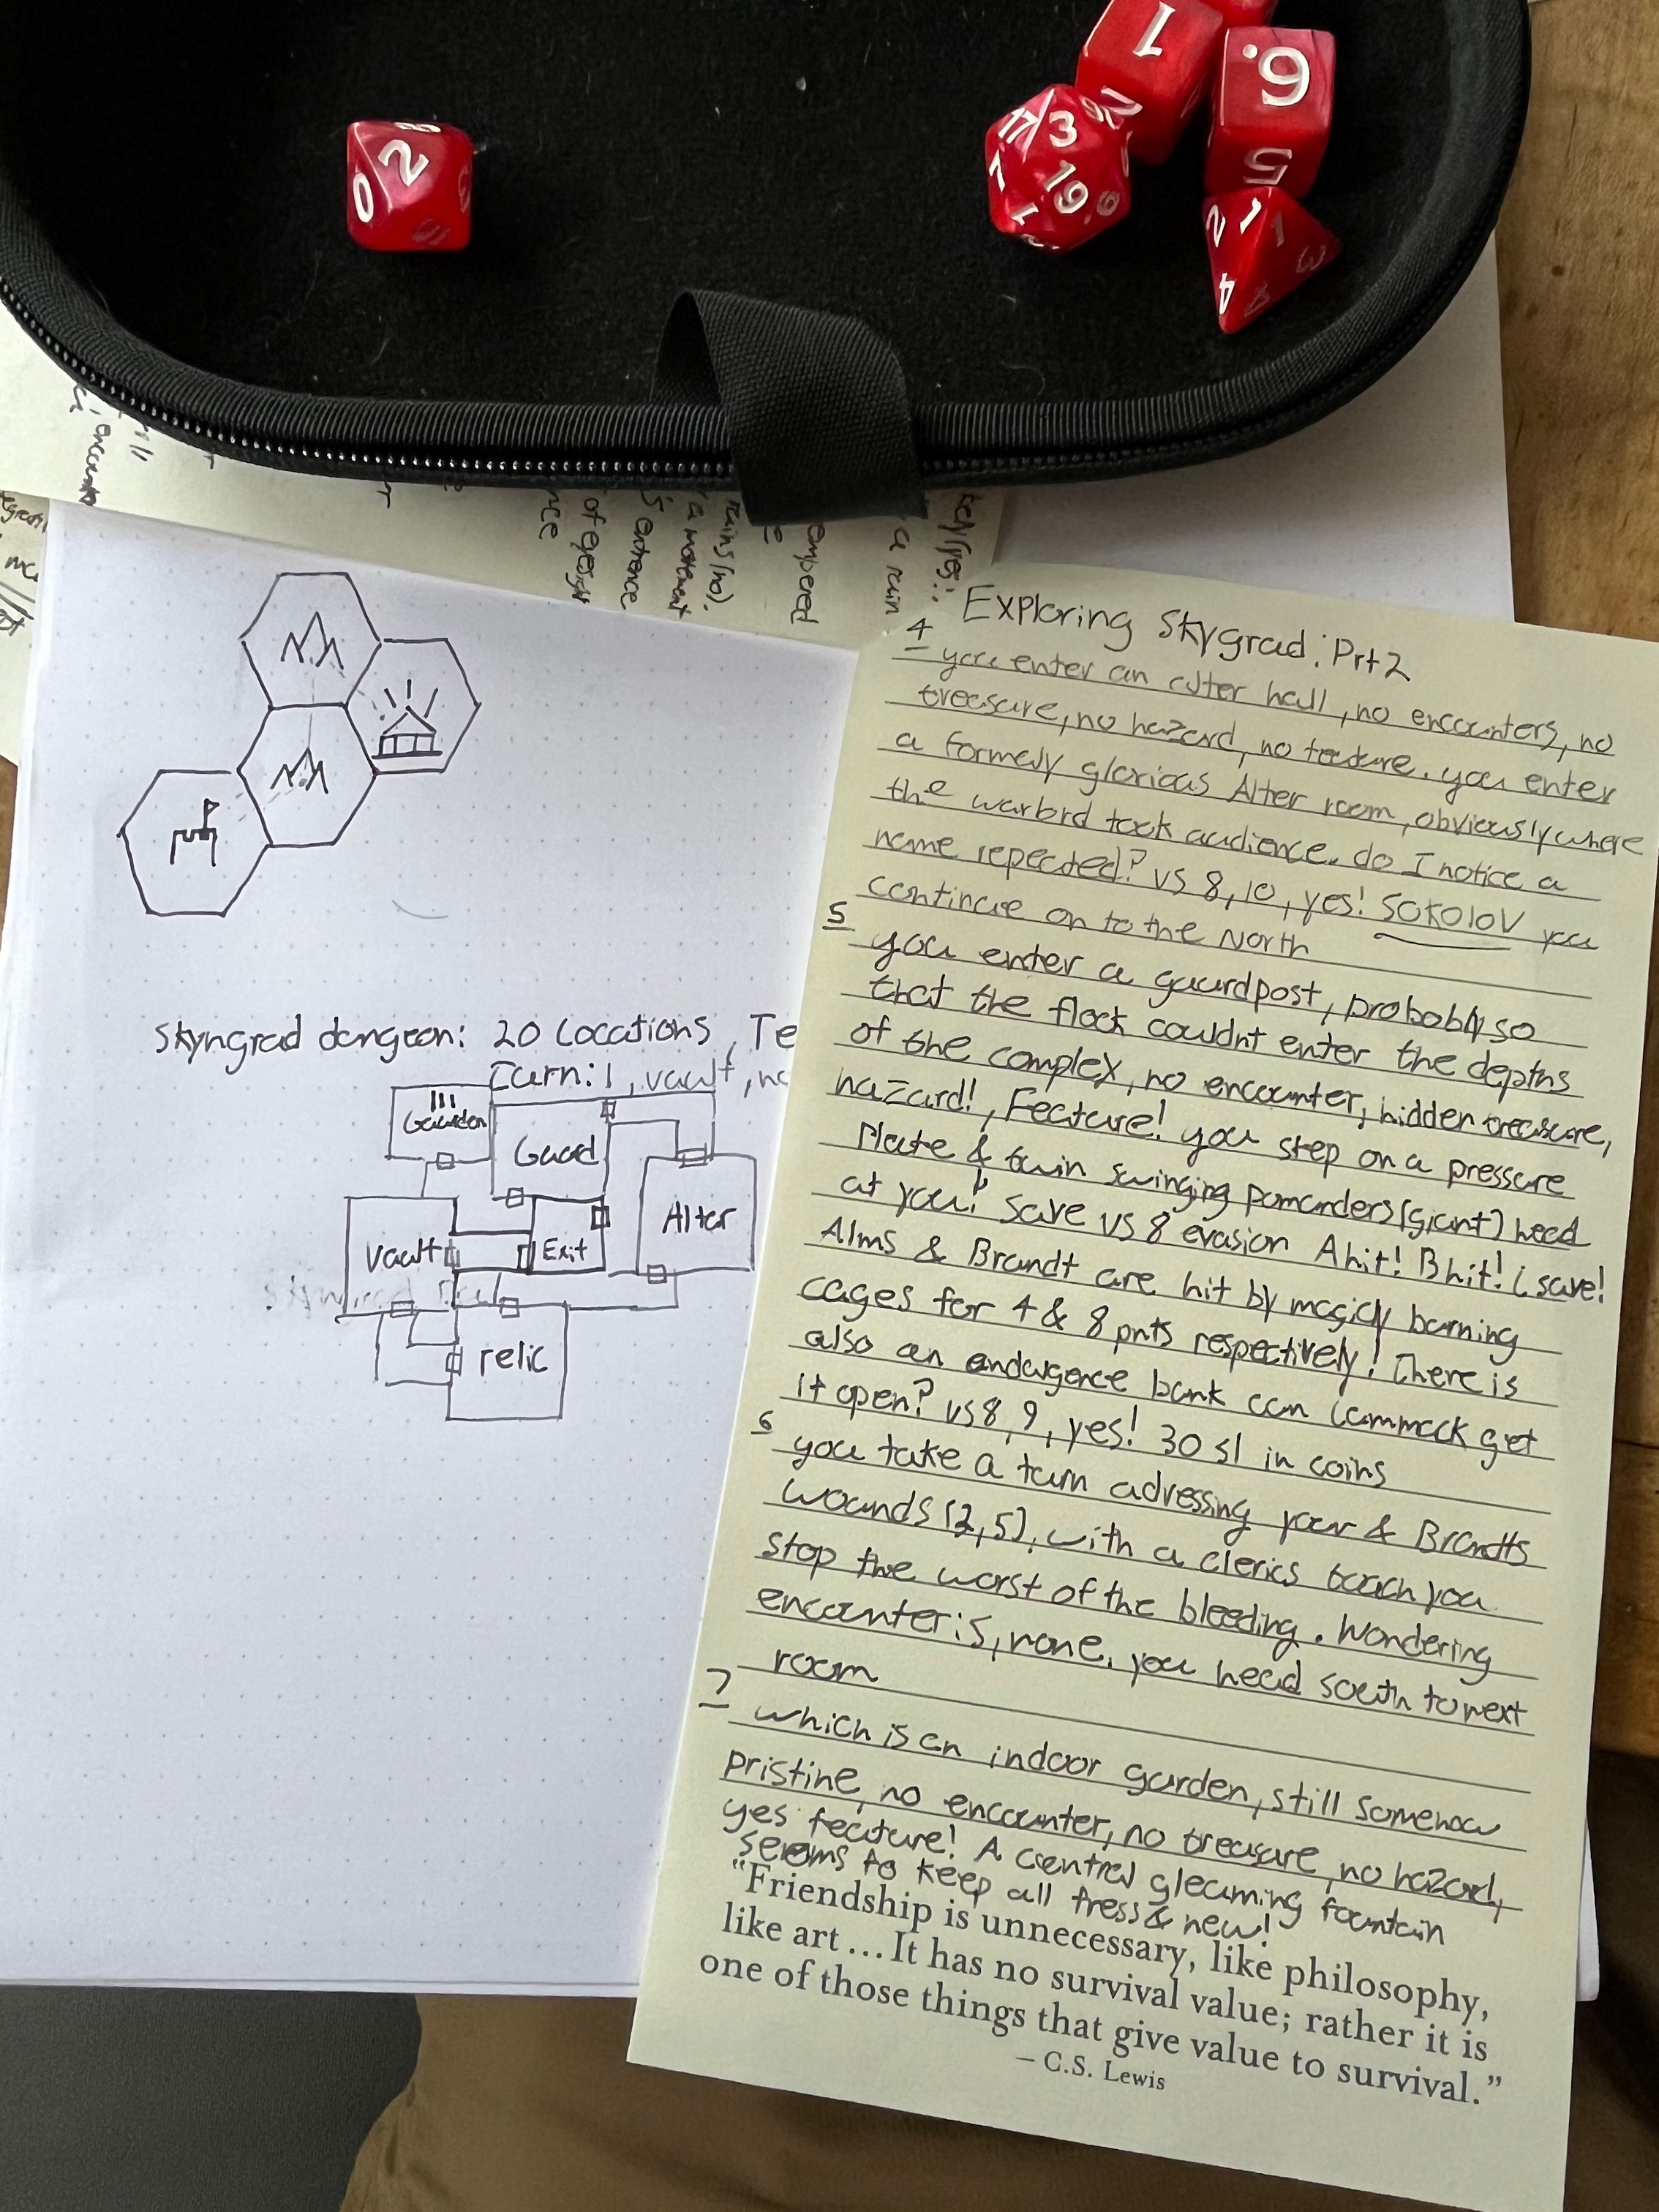 Exploring Skygrad: Prt 2
4
you enter an alter hall, no encounters, no
treasure, no hazard, no feature. you enter
a formely glorious Alter room, obviously where
the warlord took audience. do I notice a
name repected? vs 8, 10, yes! SOKOLOV you
continue on to the North
5
you enter a guardpost, probobly so
that the flock couldnt enter the depths
of the complex, no encounter, hidden treasure,
hazard!, Feature! you step on a pressure
Plate & twin swinging pomanders (giant) head
at you! Save vs 8 evasion A hit! B hit! L save!
Alms & Brandt are hit by magicly burning
cages for 4 & 8 pnts respectively! There is
also an endurgence bank can Lammack get
it open? vs 8, 9, yes! 30 sl in coins
6
you take a turn adressing your & Brandts
wounds (2,5), with a clerics touch you
stop the worst of the bleeding. Wondering
encounter: 5, none. you head south to next
room
7
which is an indoor garden, still somehow
pristine, no encounter, no treasure, no hazard,
yes feature! A central gleaming fountain
seems to keep all fress & new!
"Friendship is unnecessary, like philosophy,
like art ... It has no survival value; rather it is
one of those things that give value to survival."
– C.S. Lewis
Skyngrad dungeon: 20 Locations, Te
Turn: 1, vault, no
Gaurden
Guard
Alter
Vault
Exit
relic
tely (yes!:
a ruin
empered
ruins (no).
a movement
5 entrence
of eyesight
nce
2
0
1
6.
5
17
3
19
1
2
1
4